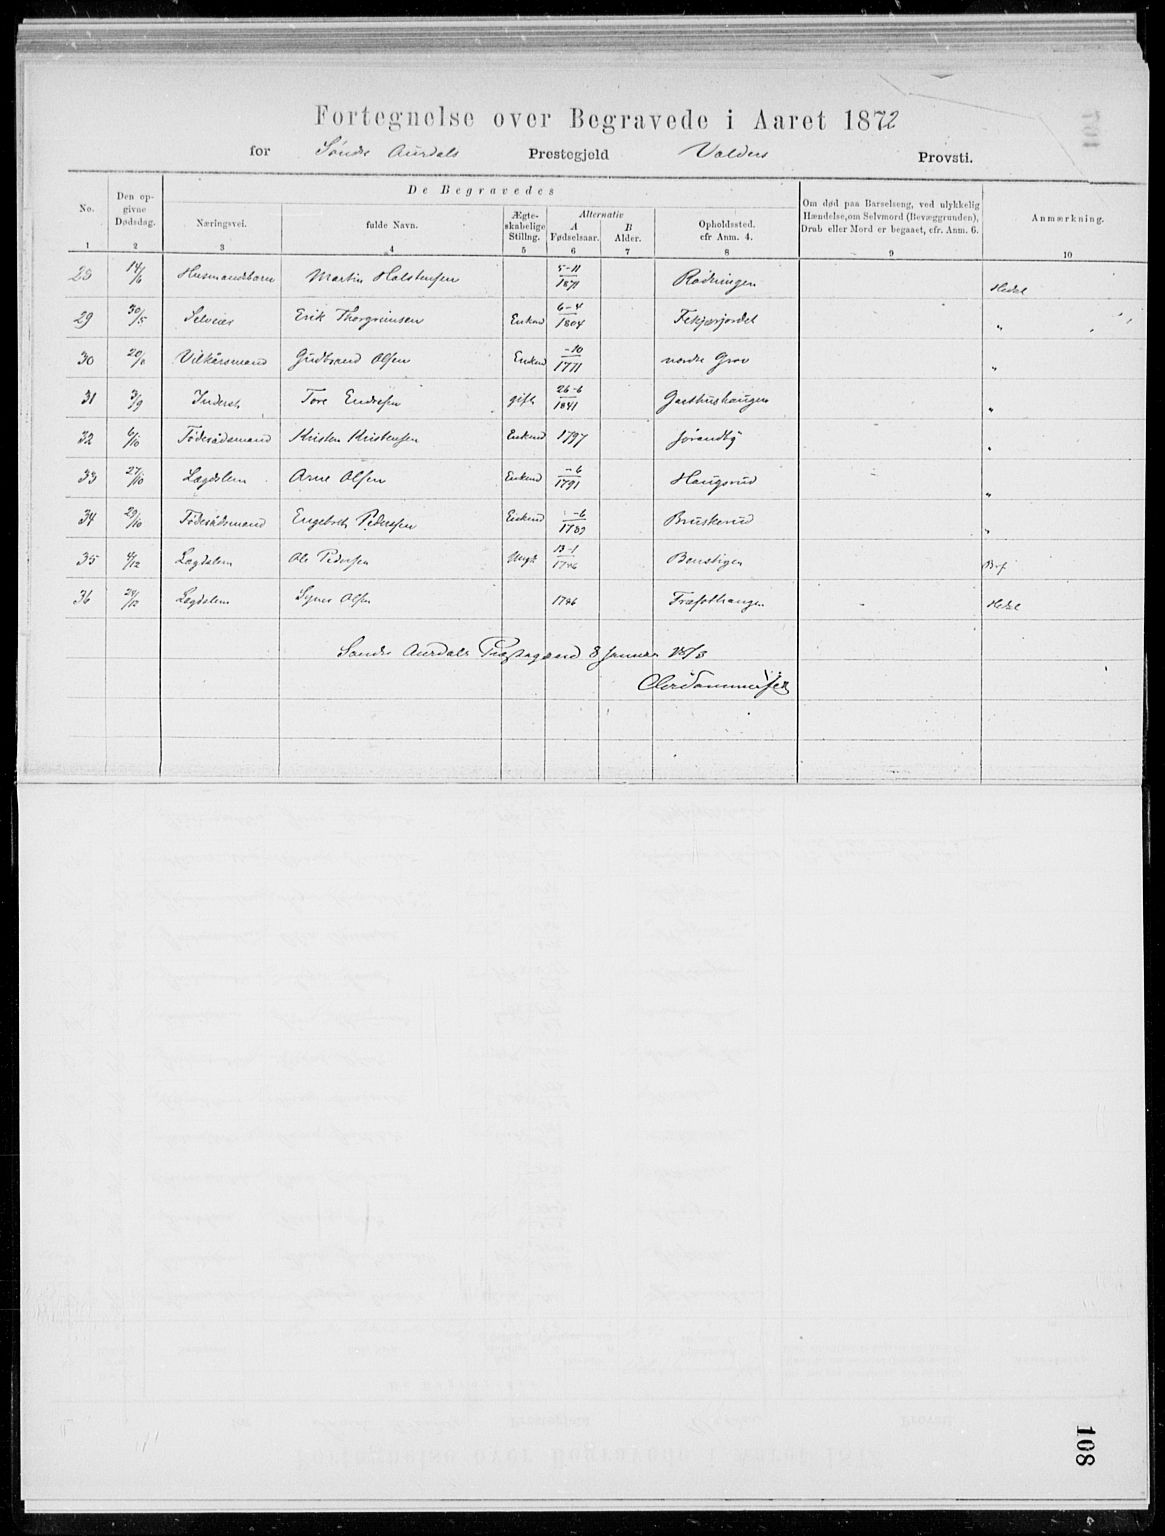 Fortegnelse over Begravede i Aaret 1872
for Søndre Aurdals Prestegjeld Valders Provsti.
De Begravedes
No. Den opgivne Dødsdag. Næringsvei. fulde Navn. Ægteskabelige Stillng. Alternativ A Fødselsaar. B Alder. Opholdssted. cfr Anm. 4. Om død paa Barselseng, ved ulykkelig Hændelse, om Selvmord (Bevæggrunden), Drab eller Mord er begaaet, cfr. Anm. 6. Anmærkning.
1 2 3 4 5 6 7 8 9 10
14/6 Husmandsbarn Martin Halstensen 5-11 Rødningen Hedal
29 30/5 Selveier Erik Thorgrimsen Enkmd 6-4 1804 Fekjærjordet "
30 Vilkårsmand Gudbrand Olsen Enkmd -10 1771 nordre Grov "
31 3/9 Inderst Tore Endresen gift 26-6 1841 Garthushaugen "
32 6/10 Føderådsmand Kristen Kristensen Enkmd 1797 Jørandby "
33 27/10 Lægdslem Arne Olsen Enkmd -6 1791 Haugsrud "
34 29/10 Føderådsmand Engebret Pedersen Enkmd -6 Bruskerud "
35 4/12 Lægdslem Ole Pedersen Ungk 13-1 Benstigen
36 24/12 Lægdslem Syver Olsen Træfothaugen Hedal
Søndre Aurdals Præstegaard 8 Januar 1873
108